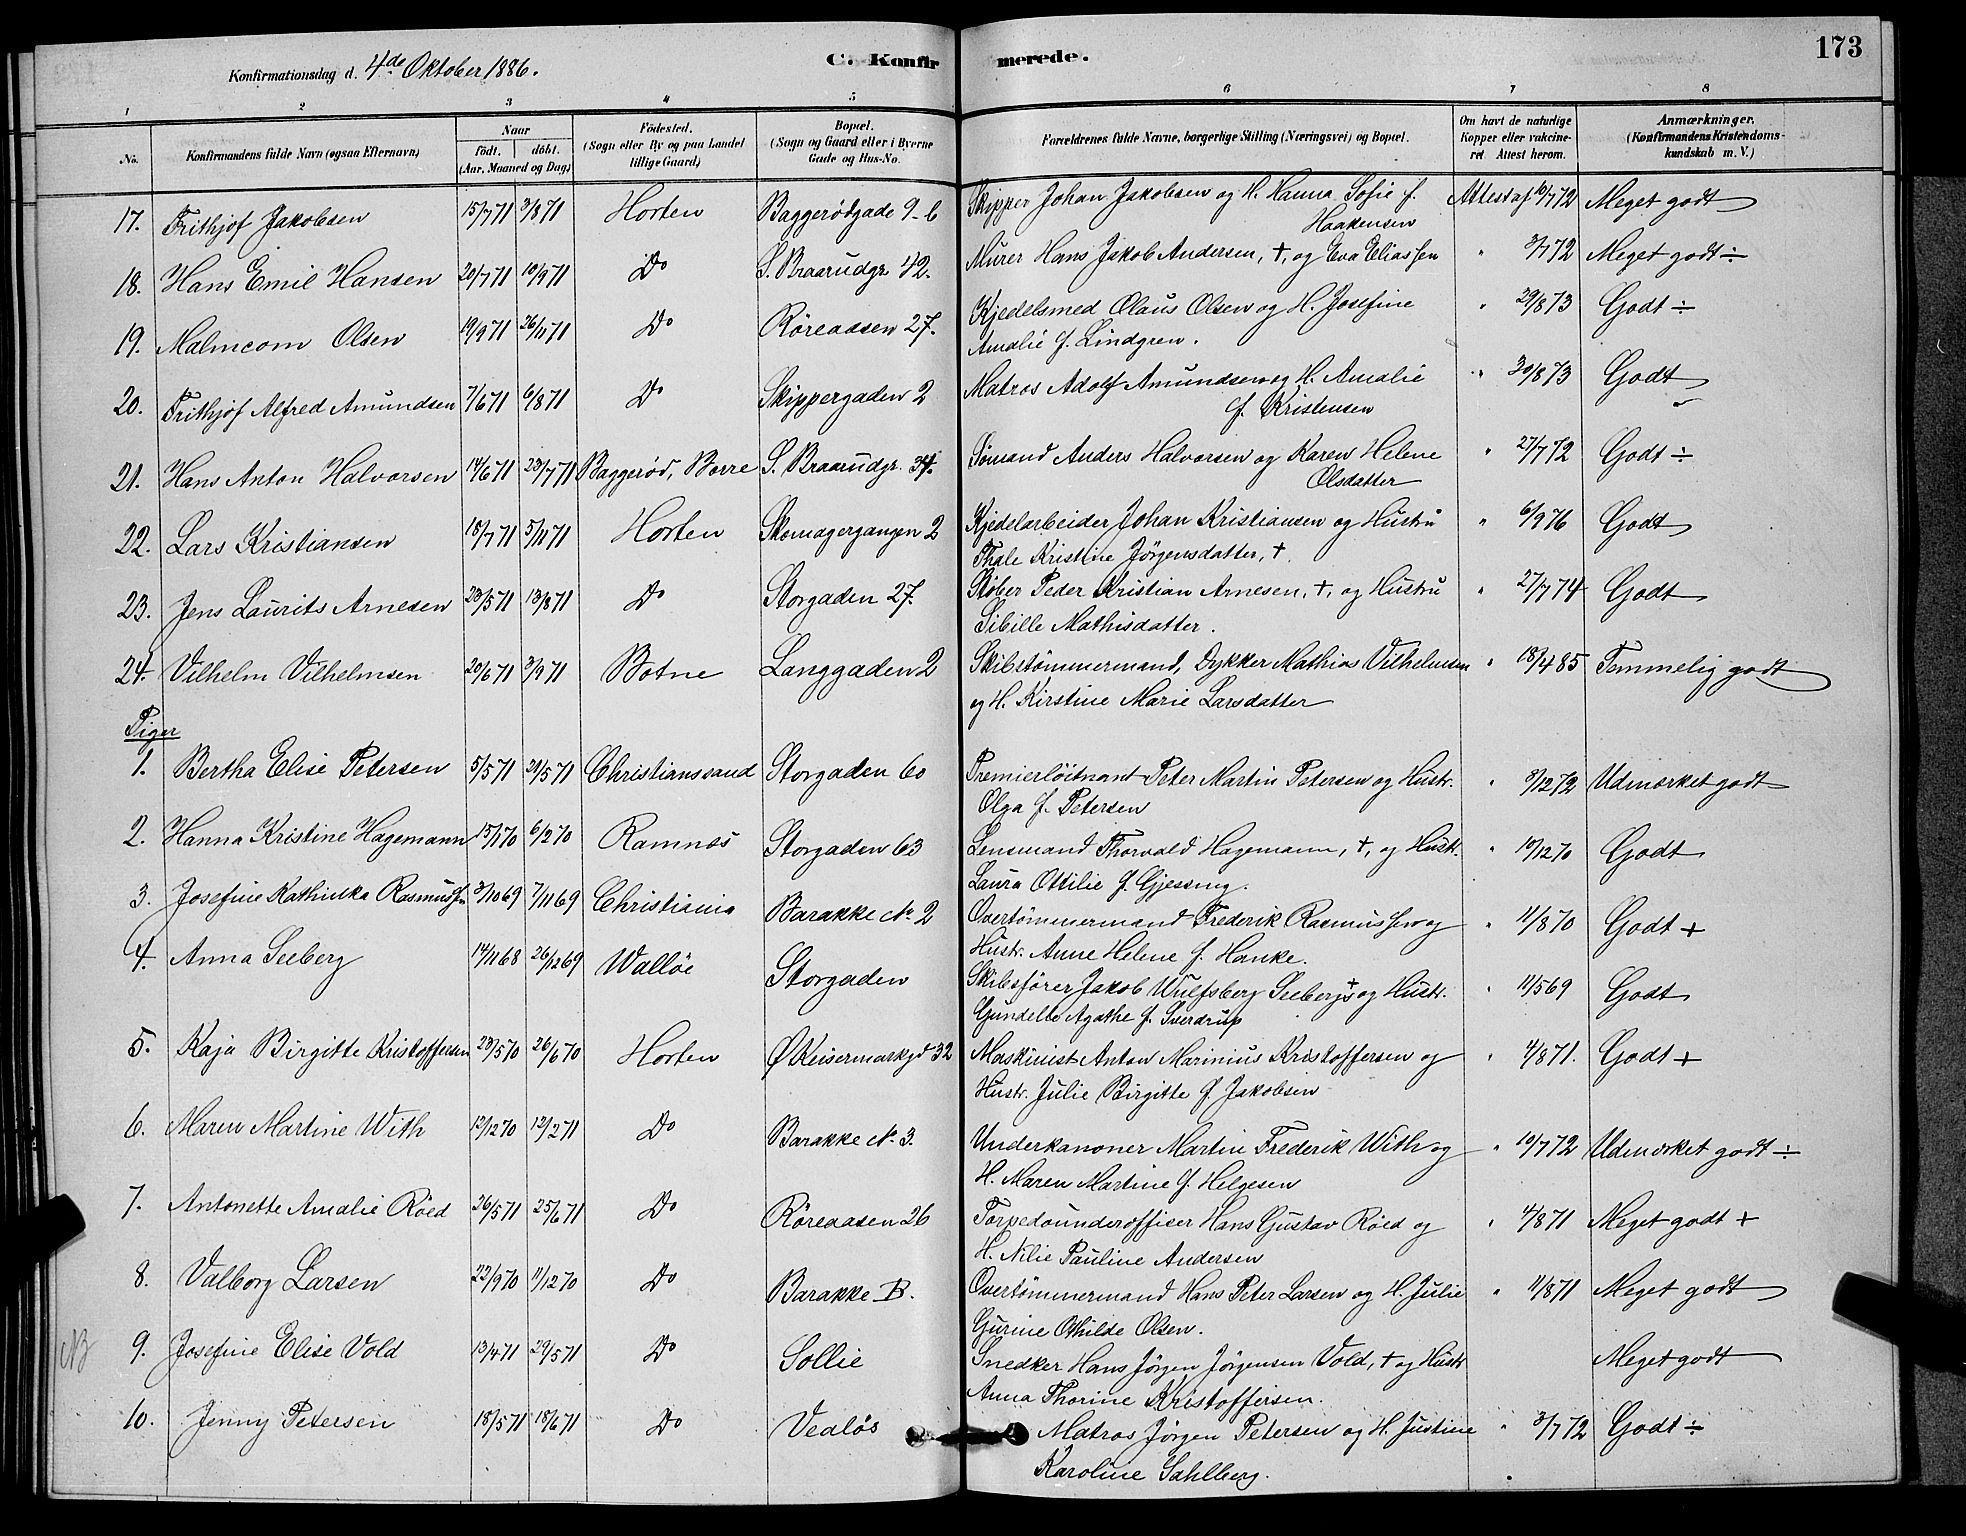 Konfirmationsdag d. 4de Oktober 1886.
C. Konfirmerede.
173
1 2 3 4 5 6 7 8
No. Konfirmandens fulde Navn (ogsaa Efternavn) Naar født. døbt. (Aar, Maaned og Dag) Fødested. (Sogn eller By og paa Landet tillige Gaard) Bopæl. (Sogn og Gaard eller i Byerne Gade og Hus-No. Forældrenes fulde Navne, borgerlige Stilling (Næringsvei) og Bopæl. Om havt de naturlige Kopper eller vakcineret. Attest herom. Anmærkninger. (Konfirmandens Kristendomskundskab m. V.)
17. Frithjof Jakobsen 15/7 71 3/8 71 Horten Baggerødgade 9-6 Skipper Johan Jakobsen og H. Hanna Sofie f. Attest af 10/7 72 Meget godt
Haakensen
18. Hans Emil Hansen 20/7 71 10/9 71 Do S. Braarudgt 42. Murer Hans Jakob Andersen, +, og Eva Eliassen " 3/7 72 Meget godt ÷
19. Malmcom Olsen 19/9 71 26/11 71 Do Røreaasen 27. Kjedelsmed Olaus Olsen og H. Josefine " 29/8 73 Godt ÷
Amalie f. Lindgren.
20. Frithjof Alfred Amundsen 7/6 71 6/8 71 Do Skippergaden 2 Matros Adolf Amundsen og H. Amalie " 30/8 73 Godt
f. Kristensen
21. Hans Anton Halvorsen 14/6 71 23/7 71 Baggerød, Borre S. Braarudgt. 34. Sømand Anders Halvorsen og Karen Helene " 27/7 72 Godt ÷
Olsdatter
22. Lars Kristiansen 18/7 71 5/11 71 Horten Skomagergangen 2 Kjedelarbeider Johan Kristiansen og Hustru " 6/9 76 Godt
Thale Kristine Jørgensdatter, +.
23. Jens Laurits Arnesen 23/5 71 13/8 71 Do Storgaden 27. Støber Peder Kristian Arnesen, +, og Hustru " 27/7 74 Godt
Sibille Mathisdatter.
24. Vilhelm Vilhelmsen 20/6 71 3/9 71 Botne Langgaden 2 Skibstømmermand, Dykker Mathias Vilhelmsen " 18/4 85 Temmelig godt
og H. Kirstine Marie Larsdatter
Piger
1. Bertha Elise Petersen 5/5 71 21/5 71 Christianssand Storgaden 60 Premierløitnant Peter Martin Petersen og Hustr. " 3/12 72 Udmærket godt
Olga f. Petersen
2. Hanna Kristine Hagemann 15/1 70 6/2 70 Ramnæs Storgaden 63 Lensmand Thorvald Hagemann, +, og Hustr. " 10/12 70 Godt
Laura Ottilie f. Gjessing.
3. Josefine Kathinka Rasmussen 3/10 69 7/11 69 Christiania Barakke No. 2 Overtømmermand Frederik Rasmussen og " 11/8 70 Godt +
Hustr. Anne Helene f. Hanke.
4. Anna Seeberg 14/11 68 26/12 69 Walløe Storgaden Skibsfører Jakob Wulfsberg Seeberg + og Hustr. " 11/5 69 Godt
Gundelle Agathe f. Sverdrup
5. Kaja Birgitte Kristoffersen 23/5 70 26/6 70 Horten Ø Keisermarkgd 32 Maskinist Anton Marinius Kristoffersen og " 4/8 71. Godt +
Hustr. Julie Birgitte f. Jakobsen
6. Maren Martine With 12/12 70 12/2 71 Do Barakke No. 3. Underkanoner Martin Frederik With og " 10/7 72 Udmærket godt ÷
H. Maren Martine f. Helgesen
7. Antonette Amalie Røed 26/5 71 25/6 71 Do Røreaasen 26 Torpedounderofficer Hans Gustav Røed og " 4/8 71 Meget godt +
H. Nilie Pauline Andersen
8. Valborg Larsen 22/9 70 11/12 70 Do Barakke B. Overtømmermand Hans Peter Larsen og H. Julie " 4/8 71 Meget godt
Gurine Othilde Olsen.
NB 9. Josefine Elise Vold 13/4 71 29/5 71 Do Sollie Snedker Hans Jørgen Jørgensen Vold, + og Hustr Meget godt
Anna Thorine Kristoffersen.
10. Jenny Petersen 18/5 71 18/6 71 Do Vealøs Matros Jørgen Petersen og H. Justine " 3/7 72 Godt ÷
Karoline Sahlberg.